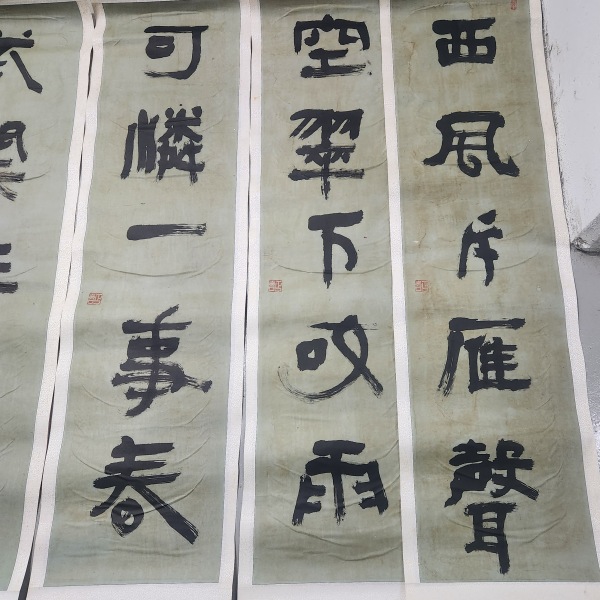 西風雁聲
空翠下吹雨
可憐一事春